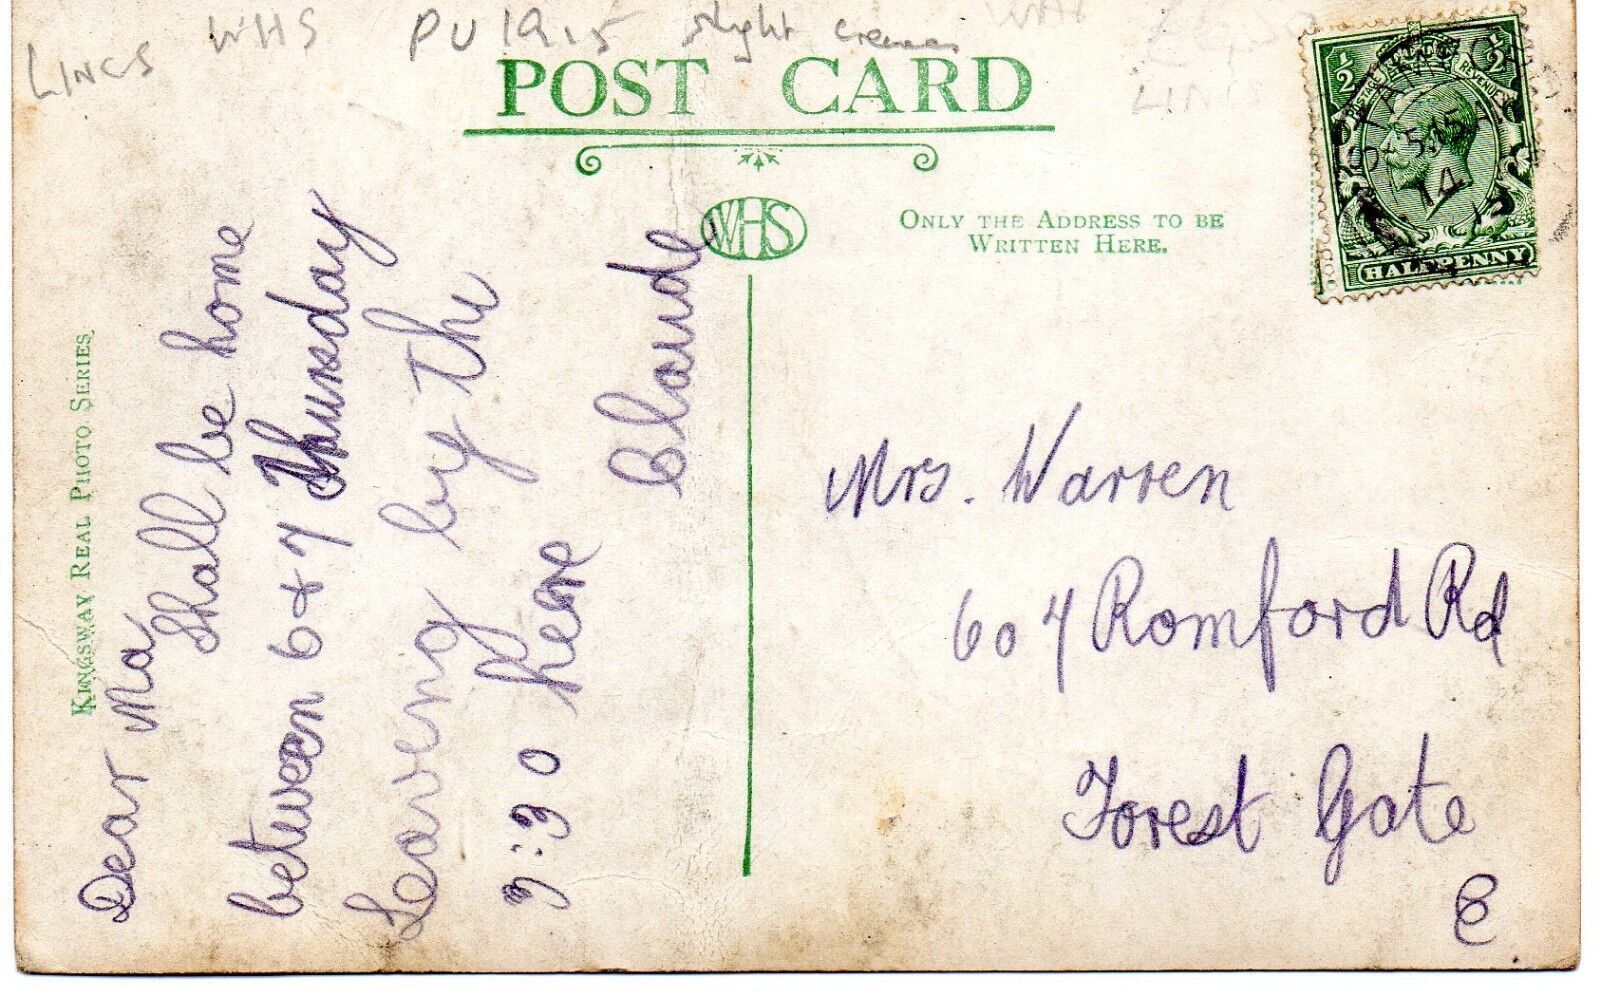 LINCS WHS PU 1915 slight creases
POST CARD
WHS
ONLY THE ADDRESS TO BE
WRITTEN HERE.
½ ½
POSTAGE REVENUE
HALFPENNY
5.15
14
KINGSWAY REAL PHOTO SERIES
Dear Ma
Shall be home
between 6 + 7 Thursday
Leaveng by the
3:30 here
Claude
Mrs. Warren
607 Romford Rd
Forest Gate
E